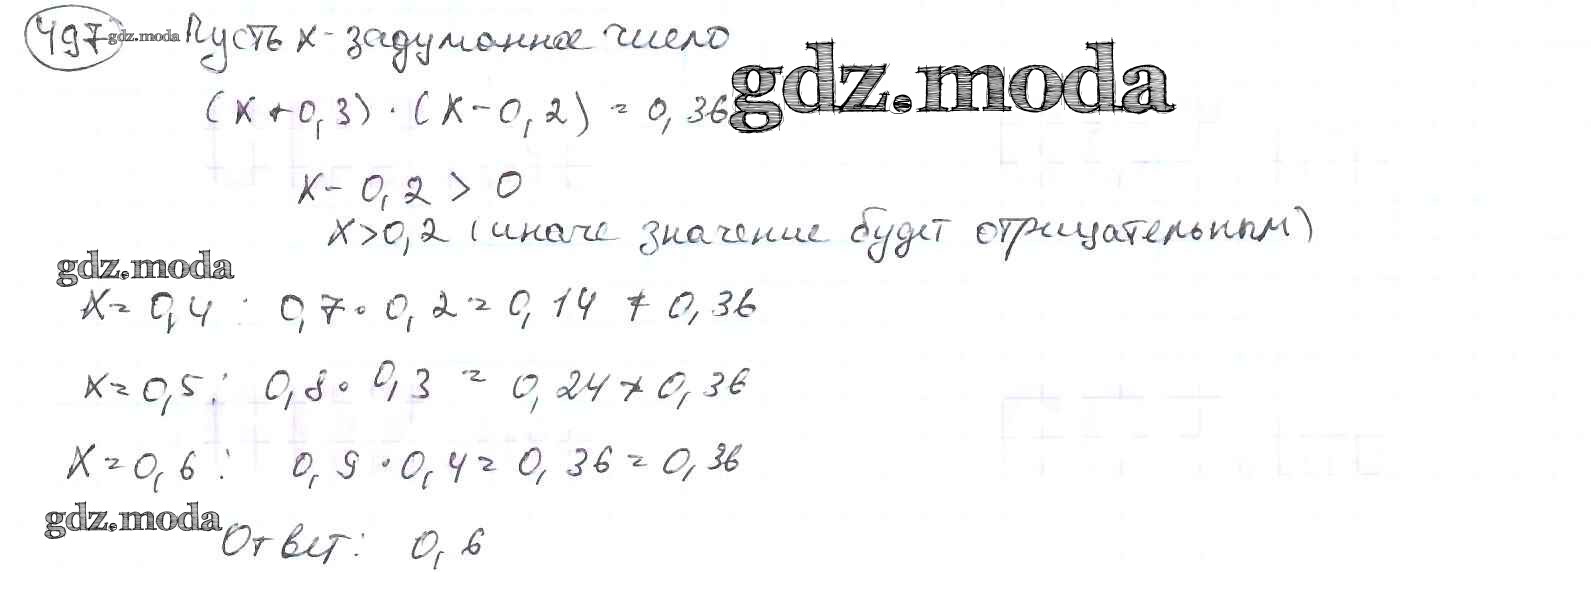 497 gdz.moda Пусть x - задуманное число
(x+0,3) · (x-0,2) = 0,36 gdz.moda
x - 0,2 > 0
x > 0,2 (иначе значение будет отрицательным)
gdz.moda
x = 0,4 : 0,7 · 0,2 = 0,14 ≠ 0,36
x = 0,5 : 0,8 · 0,3 = 0,24 ≠ 0,36
x = 0,6 : 0,9 · 0,4 = 0,36 = 0,36
gdz.moda
Ответ: 0,6